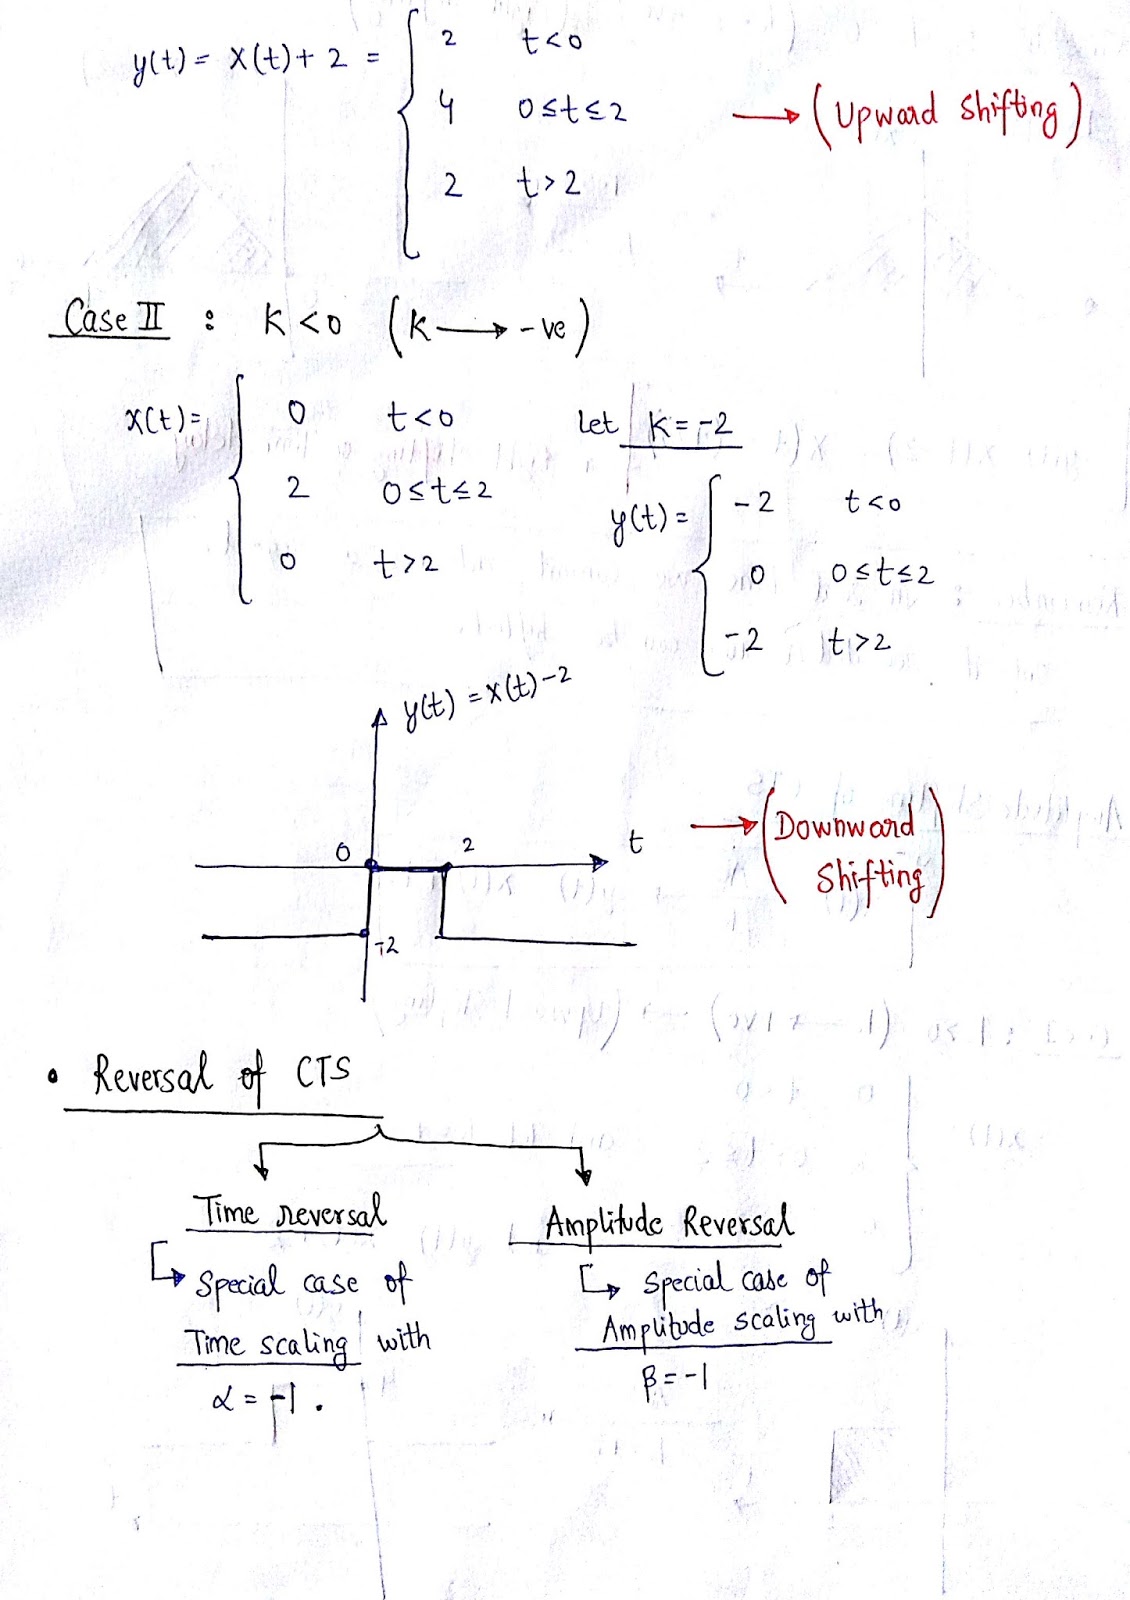 y(t) = x(t) + 2 = { 2 t<0
4 0≤t≤2
2 t>2
→ (Upward Shifting)
Case II : K<0 (K → -ve)
x(t) = { 0 t<0
2 0≤t≤2
0 t>2
Let K = -2
y(t) = { -2 t<0
0 0≤t≤2
-2 t>2
y(t) = x(t) -2
0 2 t
-2
→ (Downward
Shifting)
• Reversal of CTS
Time reversal
↳ Special case of
Time scaling with
α = -1 .
Amplitude Reversal
↳ Special case of
Amplitude scaling with
β = -1